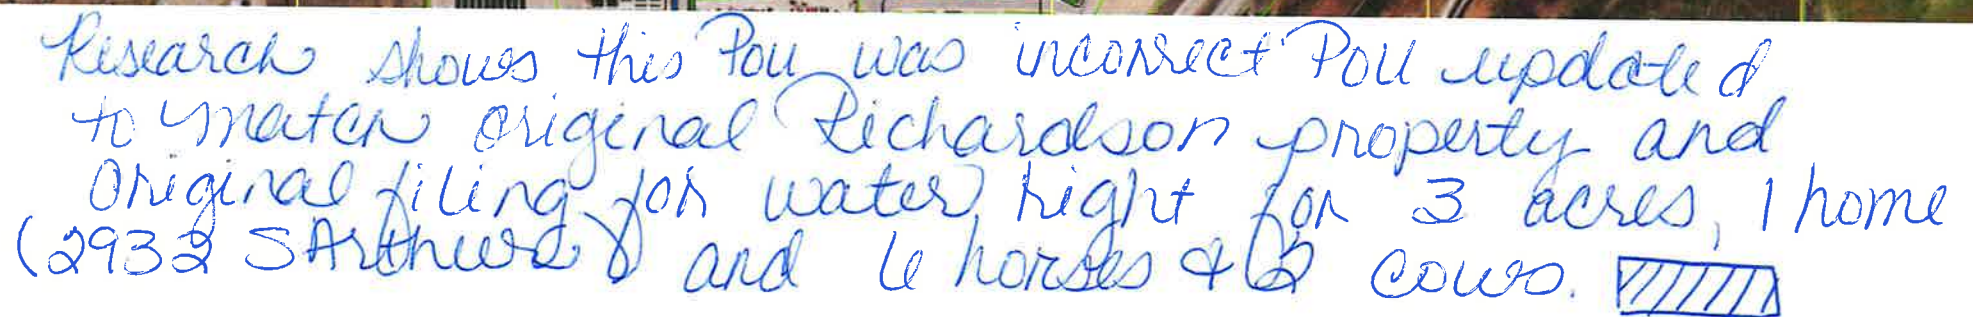 Research shows this POU was incorrect POU updated
to match original Richardson property and
Original filing for water right for 3 acres, 1 home
(2932 S Arthur) and 6 horses & 2 cows.